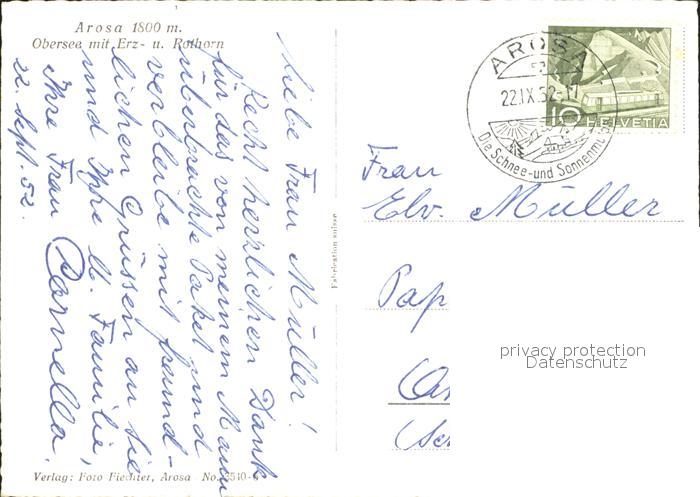 Arosa 1800 m.
Obersee mit Erz- u. Rothorn
Liebe Frau Müller!
Recht herzlichen Dank
für das von meinem Mann
überbrachte Paket und
verbleibe mit freund-
lichen Grüssen an Sie
und Ihre lb. Familie,
Ihre Frau
22. Sept. 52.
Verlag: Foto Fiechter, Arosa No. 3540-
Fabrication suisse
AROSA
22.IX.52-17
Die Schnee- und Sonnen
10 HELVETIA
Frau
Elv. Müller
Pap
privacy protection
Datenschutz